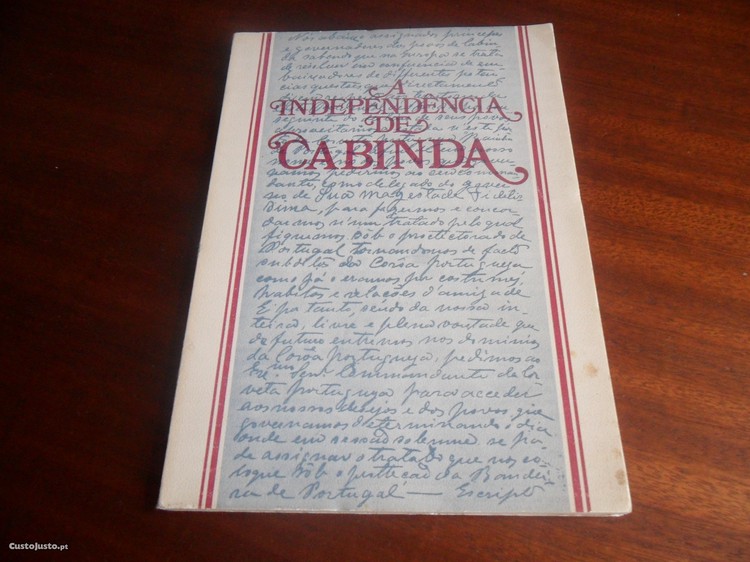 Nós abaixo assignados principes
e governadores dos povos de Cabin
da sabendo que na Europa se trata
de resolver em conferencia de em
baixadores de differentes poten
cias questões que directamente
A
INDEPENDÊNCIA
DE
CABINDA
vamos pedirmos ao
dante, como delegado do gover
no de Sua Magestade Fidelis
sima, para fazermos e concor
darmos n'um tratado pelo qual
fiquemos sôb o protectorado de
Portugal tornando-nos de facto
subditos da Corôa Portugueza
como já o eramos por costumes,
habitos e relações d'amizade
E portanto, sendo da nossa in-
teira, livre e plena vontade que
de futuro entremos nos dominios
da Corôa Portugueza, pedimos ao
Exmo. Senr. Commandante da Cor
veta portugueza para acceder
aos nossos desejos e dos povos que
governamos determinando o dia
onde em sessão solemne se ha
de assignar o tratado que nos col
loque sôb a protecção da Bandei
ra de Portugal — Escripto
CustoJusto.pt